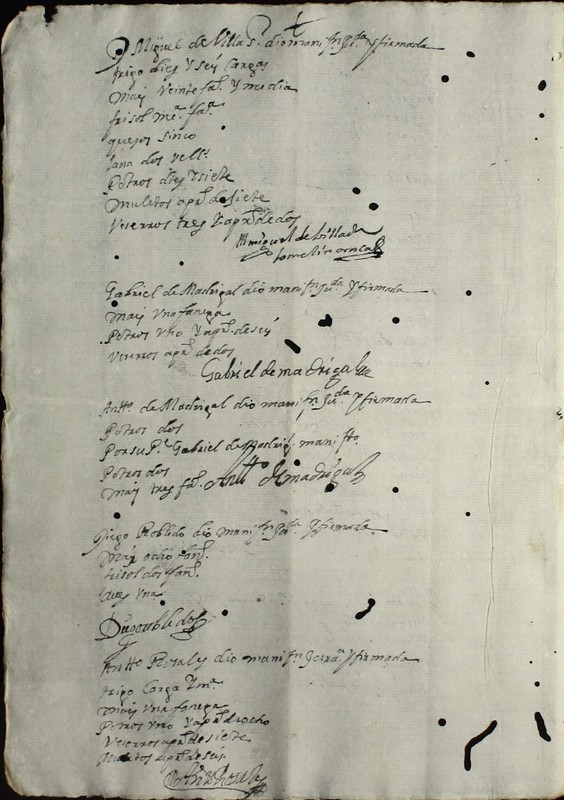 D Miguel de Villas.r dio manifn Jurda. y firmada
trigo diez y seis Cargas
maiz Veinte fas. y media
frisol mea. fa.
quesos sinco
lana dos
Potros diez y siete
muletos apro. de siete
Veserros tres y apro. de dos
Miguel de Villa
Gabriel de Madrigal dio manifn Jurda. y firmada
maiz Vna fanega
Potros Vno y apro. de seis
Veserros apro. de dos
Gabriel de madrigal
Antto. de Madrigal dio manifn Jurda. y firmada
Potros dos
Por su Pe. Gabriel de Madrigl. manifto.
Potros dos
maiz tres fas. Antto de madrigal
Diego Robledo dio manifn Jurda. y firmada
maiz ocho fans.
frisol dos fans.
aves Vna
Diego robledo
Antto Rosales dio manifn Jurada y firmada
trigo Carga y ma.
maiz Vna fanega
Potros Vno y apro. de ocho
Veserros apro. de siete
Muletos apro. de seis.
Antto Rosales